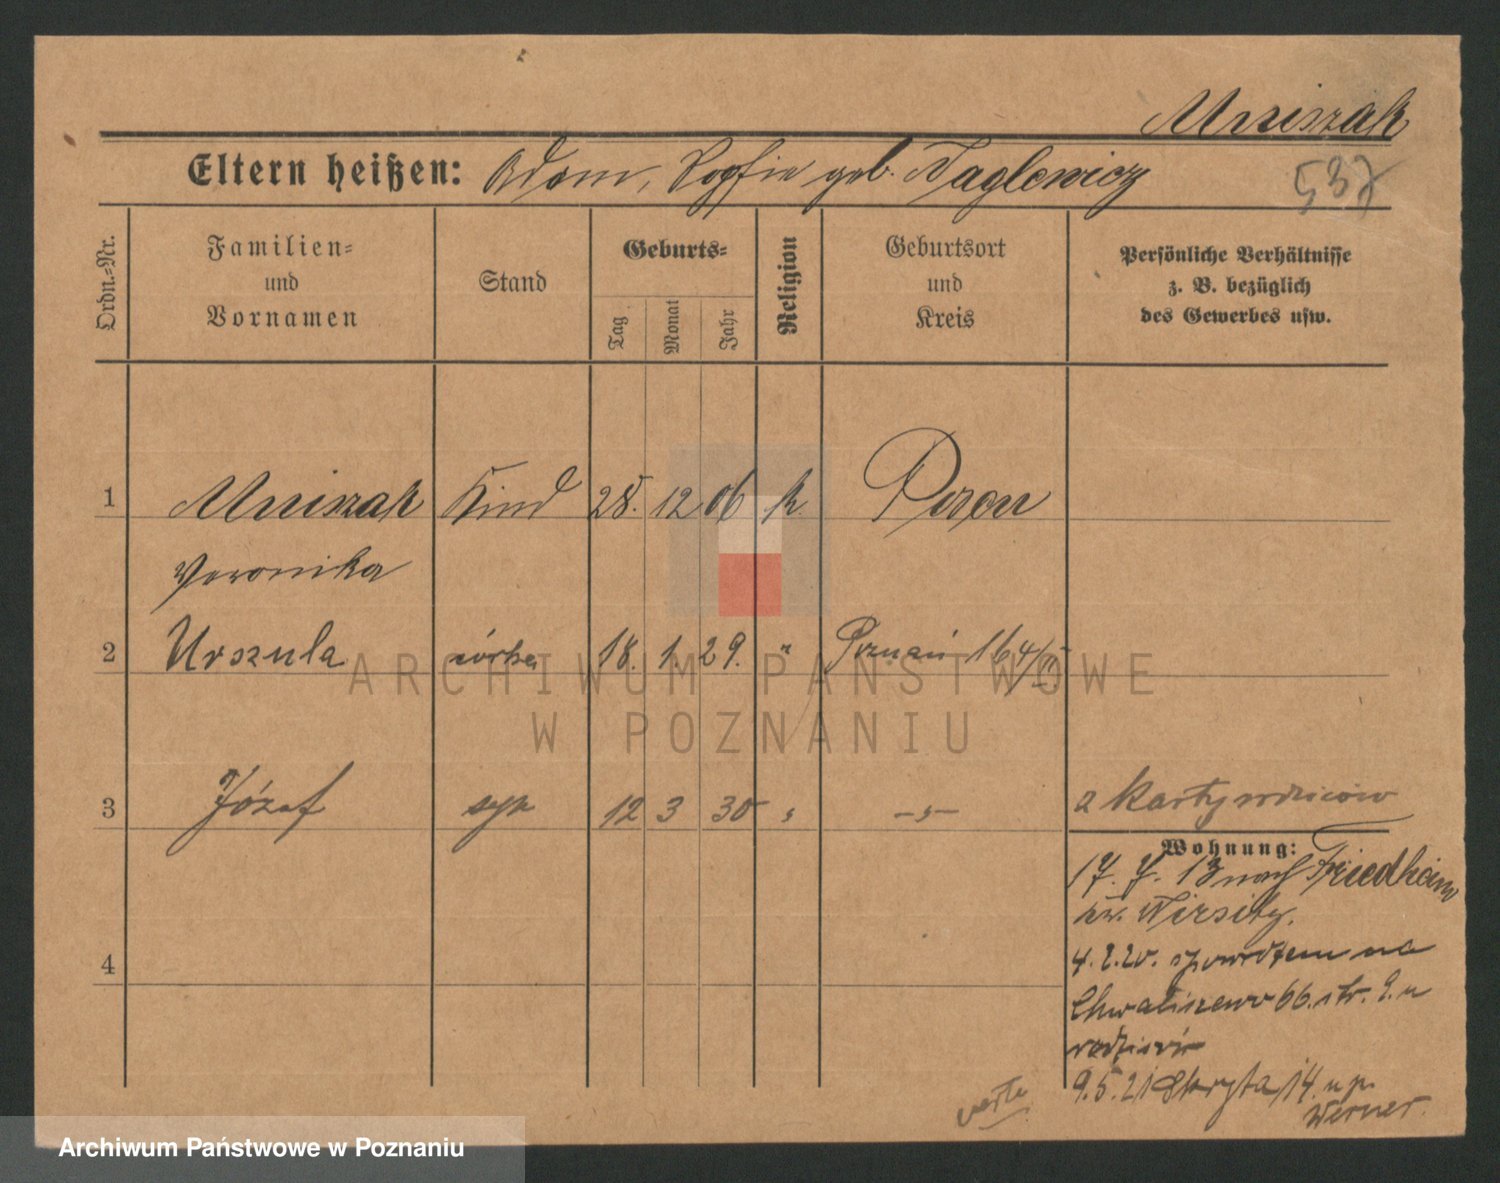 Mruszak
Eltern heißen: Adam, Sophie geb. Naglewicz
537
Ordn.-Nr.
Familien-
und
Vornamen
Stand
Geburts-
Tag
Monat
Jahr
Religion
Geburtsort
und
Kreis
Persönliche Verhältnisse
z. B. bezüglich
des Gewerbes usw.
1 Kind 28. 12 06 k. Posen
Veronika
2 Urszula córka 18. 1. 29. " Poznań 164/III
ARCHIWUM PAŃSTWOWE
W POZNANIU
3 Józef syn 12 3 30 " -"- z karty rodziców
Wohnung:
17. 7. 13 nach Friedheim
kr. Wirsitz.
4 4.2.20. spowrotem na
Chwaliszewo 66. str. 9. u
rodziców
9.5.21 Skryta 14. u p.
Werner.
verte
Archiwum Państwowe w Poznaniu